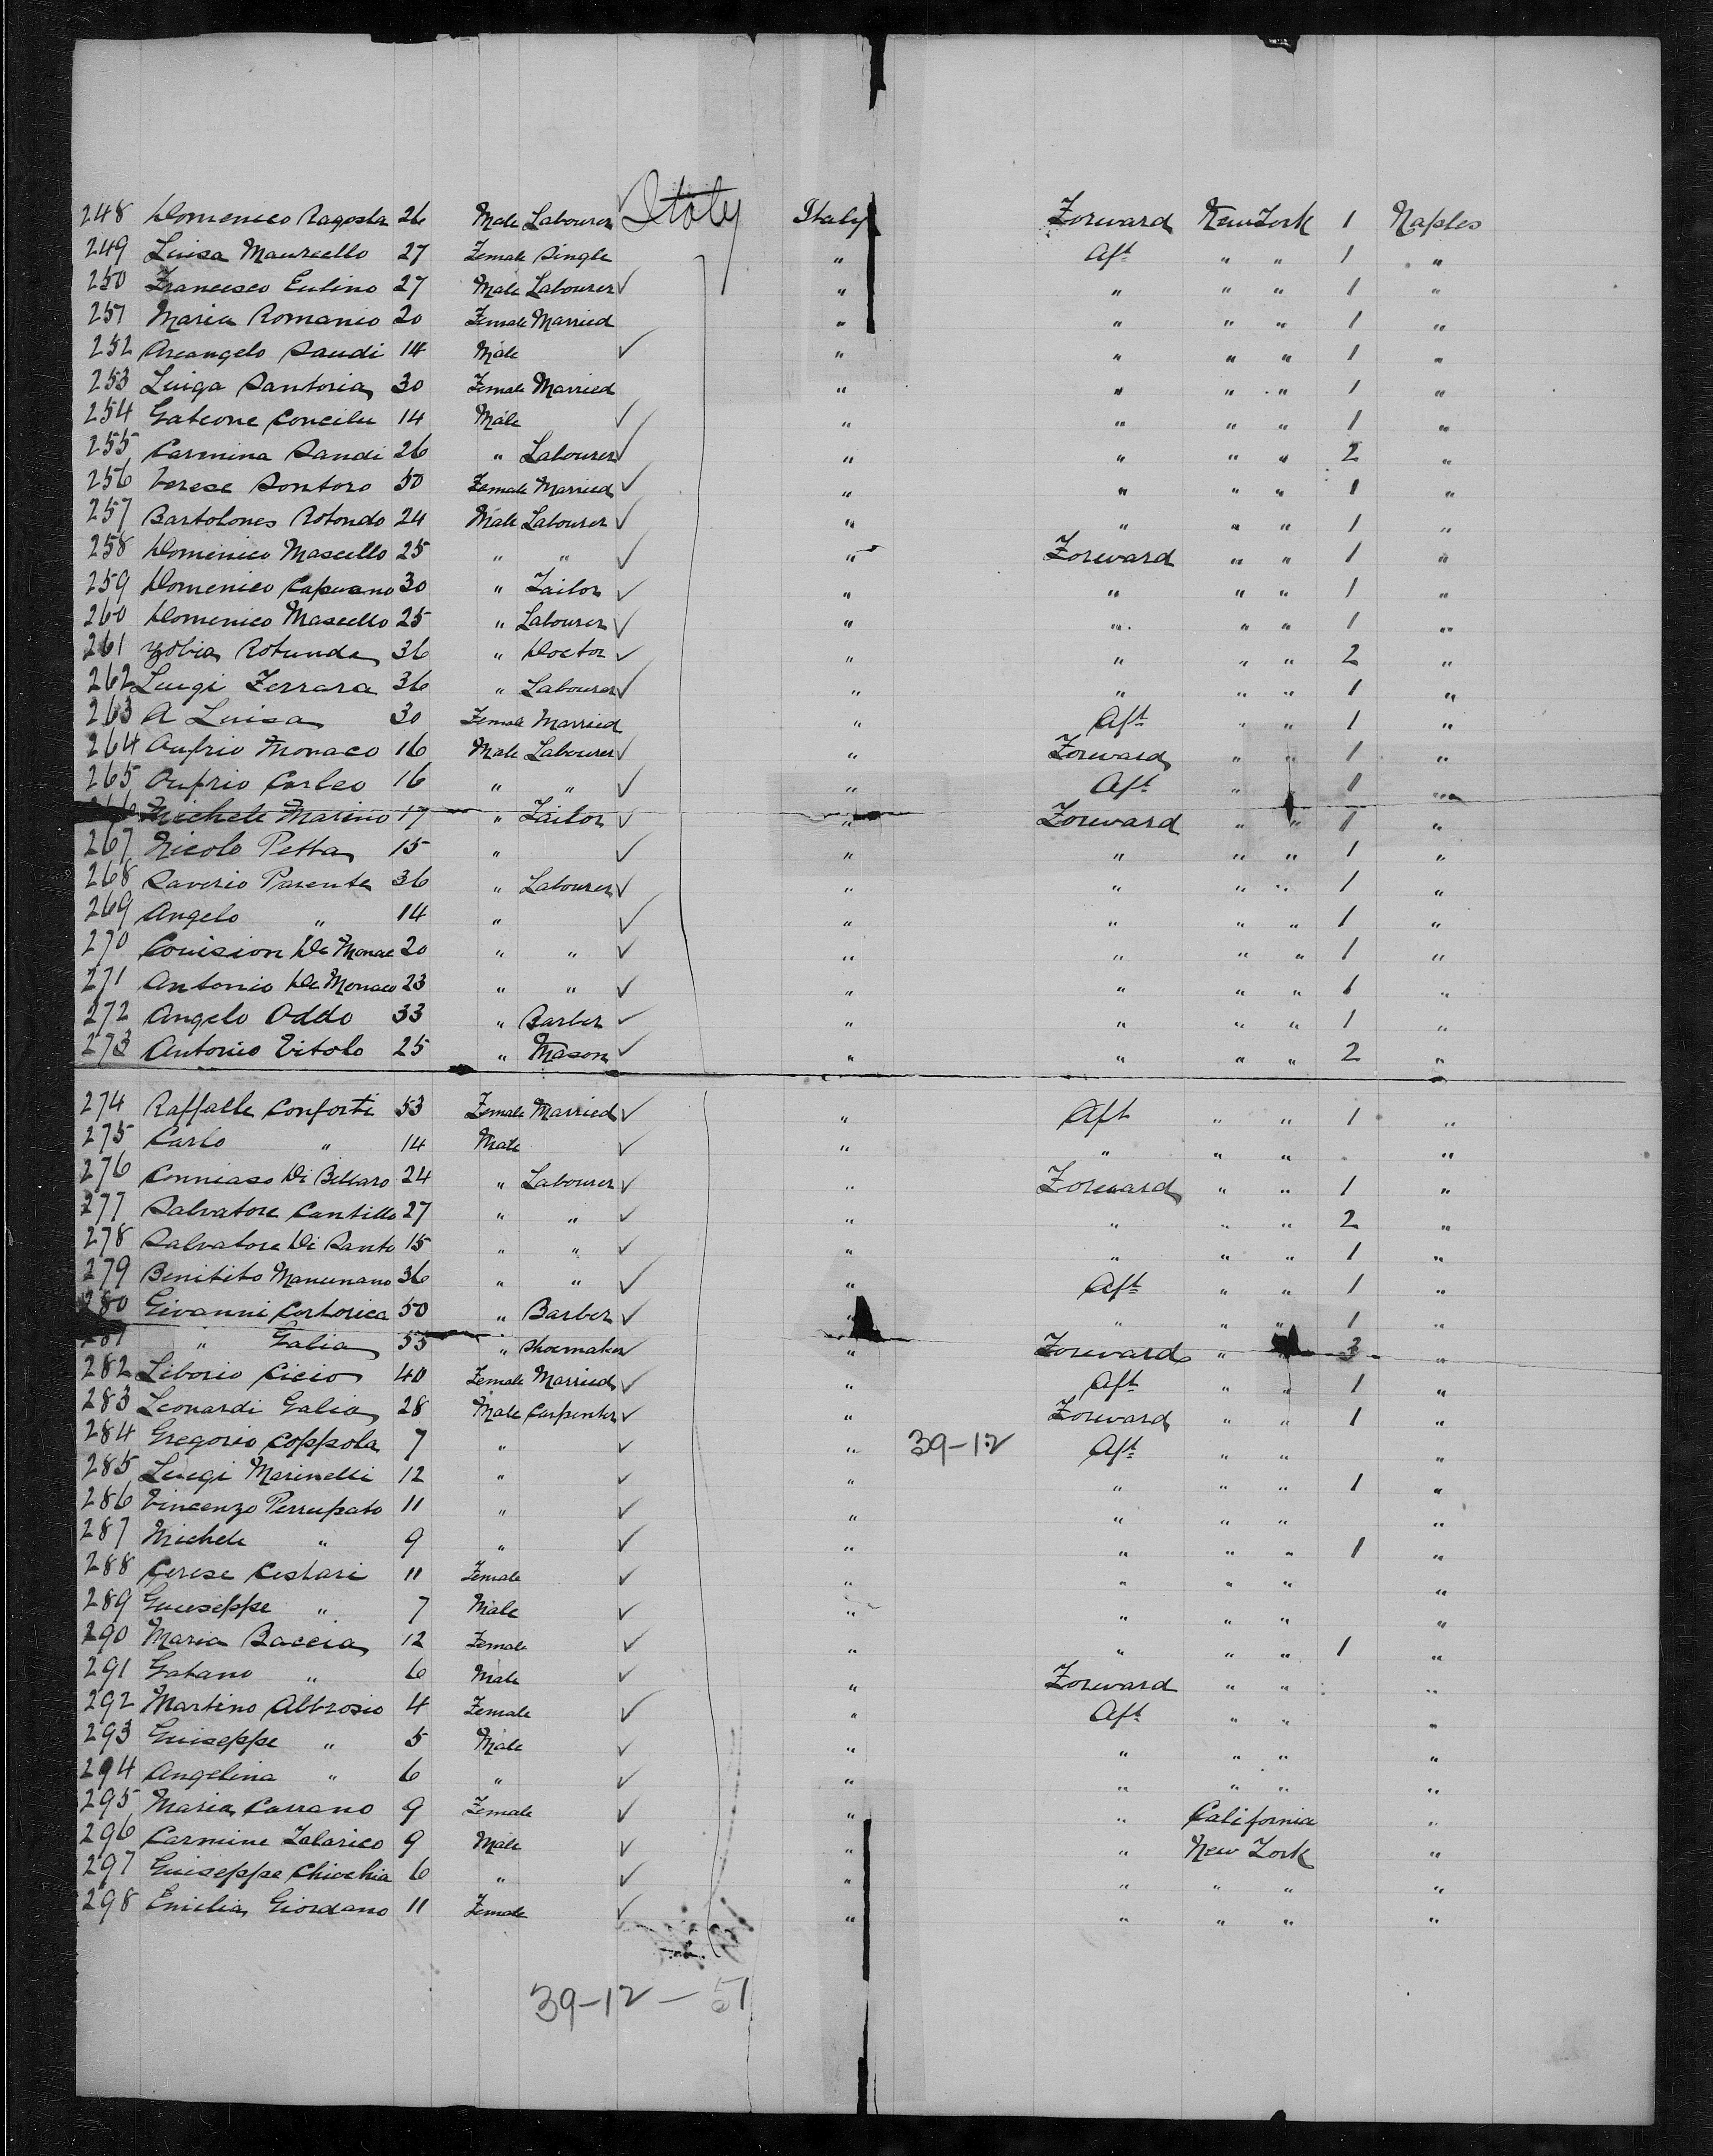 248 Domenico Ragosta 26 Male Labourer Italy Italy Forward New York 1 Naples
249 Luisa Maurcello 27 Female Single " Aft " " 1 "
250 Francesco Eulino 27 Male Labourer ✓ " " " " 1 "
251 Maria Romanio 20 Female Married " " " " 1 "
252 Arcangelo Saudi 14 Male ✓ " " " " 1 "
253 Luiga Santoria 30 Female Married " " " " 1 "
254 Gatcone Concilu 14 Male ✓ " " " " 1 "
255 Carmina Sandi 26 " Labourer ✓ " " " " 2 "
256 Verese Sontoro 50 Female Married ✓ " " " " 1 "
257 Bartolones Rotondo 24 Male Labourer ✓ " " " " 1 "
258 Domenico Mascello 25 " " ✓ " Forward " " 1 "
259 Domenico Capuano 30 " Tailor ✓ " " " " 1 "
260 Domenico Mascello 25 " Labourer ✓ " " " " 1 "
261 Rotunda 36 " Doctor ✓ " " " " 2 "
262 Luigi Ferrara 36 " Labourer ✓ " " " " 1 "
263 A Luisa 30 Female Married " Aft " " 1 "
264 Aufrio Monaco 16 Male Labourer ✓ " Forward " " 1 "
265 Oufrio Carleo 16 " " ✓ " Aft " 1 "
Michele Marino 17 " Tailor ✓ " Forward " " 1 "
267 Nicolo Petta 15 " ✓ " " " " 1 "
268 Saverio Parente 36 " Labourer ✓ " " " " 1 "
269 Angelo " 14 " ✓ " " " " 1 "
270 Couision De Monac 20 " " ✓ " " " " 1 "
271 Antonio De Monaco 23 " " ✓ " " " " 1 "
272 Angelo Oddo 33 " Barber ✓ " " " " 1 "
273 Antonio Vitolo 25 " Mason ✓ " " " " 2 "
274 Raffalle Conforti 53 Female Married ✓ " Aft " " 1 "
275 Carlo " 14 Male ✓ " " " " "
276 Conniaso Di 24 " Labourer ✓ " Forward " " 1 "
277 Salvatore Cantillo 27 " " ✓ " " " " 2 "
278 Salvatore Di Santo 15 " " ✓ " " " " 1 "
279 Benitito Mancinano 36 " " ✓ " Aft " " 1 "
280 Giovanni Cortorica 50 " Barber ✓ " " " " 1 "
281 " Galia 55 " Shoemaker ✓ " Forward " " 3 "
282 Liborio Cicio 40 Female Married ✓ " Aft " " 1 "
283 Leonardi Galia 28 Male Carpenter ✓ " Forward " " 1 "
284 Gregorio Coppola 7 " ✓ " 39-12 Aft " " "
285 Luigi Marinelli 12 " ✓ " " " " 1 "
286 Vincenzo Perrupato 11 " ✓ " " " " "
287 Michele " 9 " ✓ " " " " 1 "
288 Cerese Cestari 11 Female ✓ " " " " "
289 Guiseppe " 7 Male ✓ " " " " "
290 Maria Baccia 12 Female ✓ " " " " 1 "
291 Gatano " 6 Male ✓ " Forward " " "
292 Martino Albrosio 4 Female ✓ " Aft " " "
293 Guiseppe " 5 Male ✓ " " " " "
294 Angelina " 6 " ✓ " " " " "
295 Maria Carrano 9 Female ✓ " " California "
296 Carmine Talarico 9 Male ✓ " " New York "
297 Guiseppe Chicchia 6 " ✓ " " " " "
298 Emilia Giordano 11 Female ✓ " " " " "
39-12 — 51